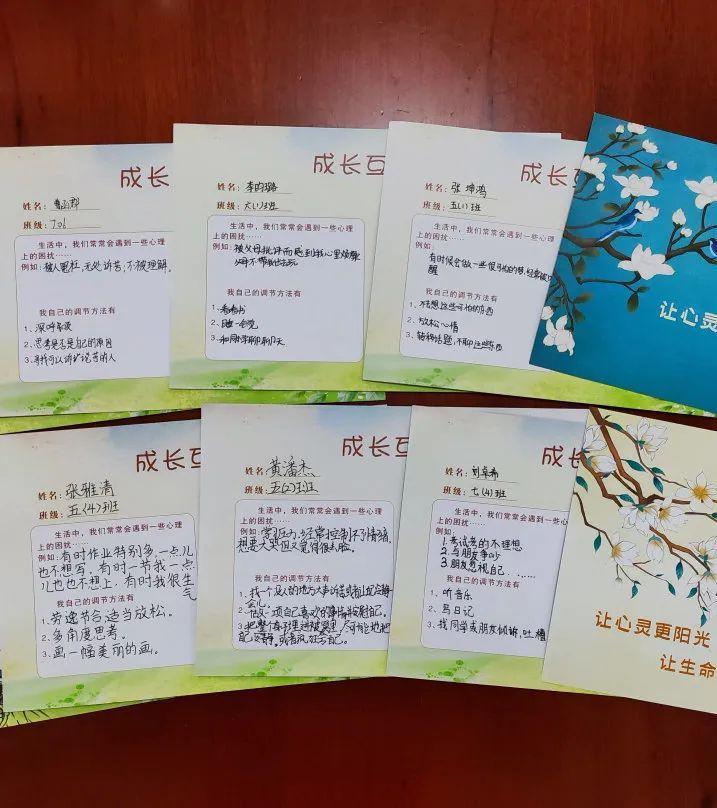 成长互
姓名:
班级: 701
生活中，我们常常会遇到一些心理
上的困扰……
例如: 被人冤枉,无处诉苦,不被理解。
我自己的调节方法有
1、深呼吸
2、思考是否是自己的原因
3、寻找可以诉说苦的人
成长互
姓名: 李昀璐
班级: 六(1)班
生活中，我们常常会遇到一些心理
上的困扰……
例如: 被父母批评而感到我心里烦躁
我自己的调节方法有
1、看看书
2、睡一会觉
3、和同学聊聊天
成长互
姓名: 张坤鸿
班级: 五(1)班
生活中，我们常常会遇到一些心理
上的困扰……
例如: 有时候会做一些很可怕的梦,经常被
醒
我自己的调节方法有
1、不去想这些可怕的东西
2、放松心情
3、转移话题,不聊这些东西
让心灵
成长互
姓名: 张雅清
班级: 五(4)班
生活中，我们常常会遇到一些心理
上的困扰……
例如: 有时作业特别多,一点儿
也不想写,有时一节我一点
儿也也不想上,有时我很生
气
我自己的调节方法有
1、劳逸节合适当放松。
2、多角度思考。
3、画一幅美丽的画。
成长互
姓名: 黄潘杰
班级: 五(2)班
生活中，我们常常会遇到一些心理
上的困扰……
例如: 常压力,经常控制不了情绪,
想要大哭但又觉得很丢脸。
我自己的调节方法有
1、找一个没人的地方大声诉苦或
会儿。
2、做一项自己喜欢的事情放射自己。
3、把整个
自己安静,或者
成长互
姓名: 刘卓希
班级: 七(4)班
生活中，我们常常会遇到一些心理
上的困扰……
例如: 1.考试考的不理想
2.与朋友争吵
3.朋友忽视自己 ……
我自己的调节方法有
1、听音乐
2、写日记
3、找同学或朋友倾诉,吐槽
让心灵更阳光
让生命